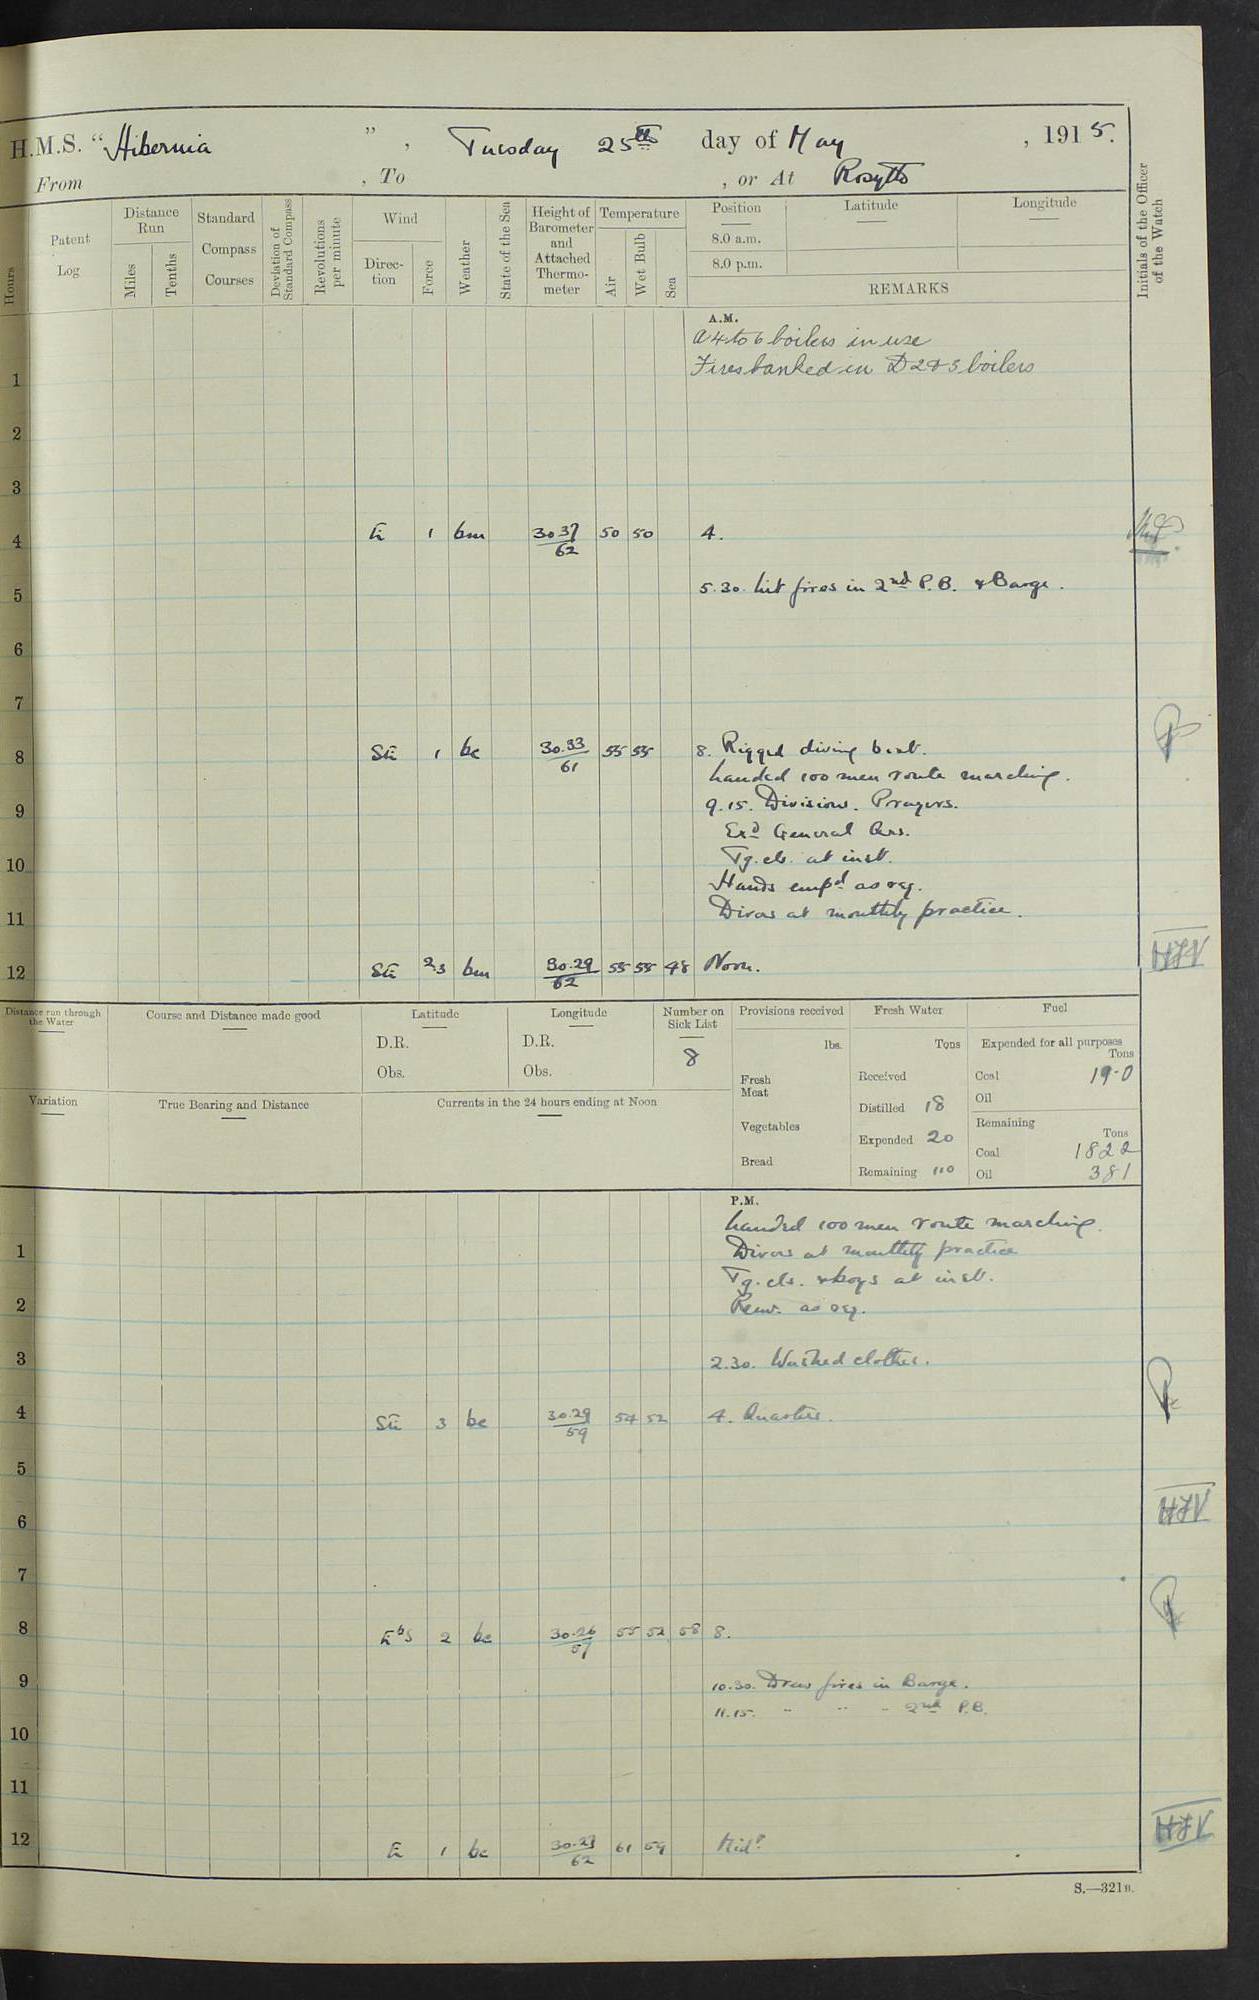 H.M.S. "Hibernia", Tuesday 25th day of May, 1915.
From , To , or At Rosyth
Hours
Patent Log
Distance Run
Miles
Tenths
Standard Compass Courses
Deviation of Standard Compass
Revolutions per minute
Wind
Direction
Force
Weather
State of the Sea
Height of Barometer and Attached Thermometer
Temperature
Air
Wet Bulb
Sea
Position
8.0 a.m.
8.0 p.m.
Latitude
Longitude
REMARKS
Initials of the Officer of the Watch
A.M.
A 4 to 6 boilers in use
1 Fires banked in D 2 & 3 boilers
2
3
4 E 1 bm 30.37/62 50 50 4.
5 5.30. Lit fires in 2nd P.B. & Barge.
6
7
8 SE 1 bc 30.33/61 55 55 8. Rigged diving boat.
Landed 100 men route marching.
9 9.15. Divisions. Prayers.
Exd General Qrs.
10 Tg. cls. at inst.
Hands empd as req.
11 Divers at monthly practice.
12 SE 2.3 bm 30.29/62 55 55 48 Noon. HJV
Distance run through the Water
Course and Distance made good
Latitude
D.R.
Obs.
Longitude
D.R.
Obs.
Number on Sick List
8
Provisions received
lbs.
Fresh Meat
Vegetables
Bread
Fresh Water
Tons
Received
Distilled 18
Expended 20
Remaining 110
Fuel
Expended for all purposes
Tons
Coal 19.0
Oil
Remaining
Tons
Coal 1822
Oil 381
Variation
True Bearing and Distance
Currents in the 24 hours ending at Noon
P.M.
Landed 100 men route marching.
1 Divers at monthly practice
Tg. cls. & boys at inst.
2 as req.
3 2.30. Washed clothes.
4 SE 3 bc 30.29/59 54 52 4. Quarters.
5
6 HJV
7
8 EbS 2 bc 30.26/57 55 52 58 8.
9 10.30. Drew fires in Barge.
11.15. " " " 2nd P.B.
10
11
12 E 1 bc 30.23/62 61 59 Midt HJV
S.—321B.